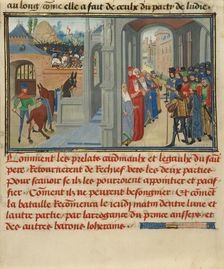 au long côme elle a fait de ceulx du party de ludie
Comment les prelatz cardinaulx et legaulx du saīt
pere Retournerent de rechief vers les deux parties
Pour savoir se ilz les pourroient appointier et paci
fier Côment ilz ne peurent besongnier Et côment
la bataille Recômenca le ieudj matin dentre lune et
lautre partie par larrogance du prince anssejs et
des autres barons loherains